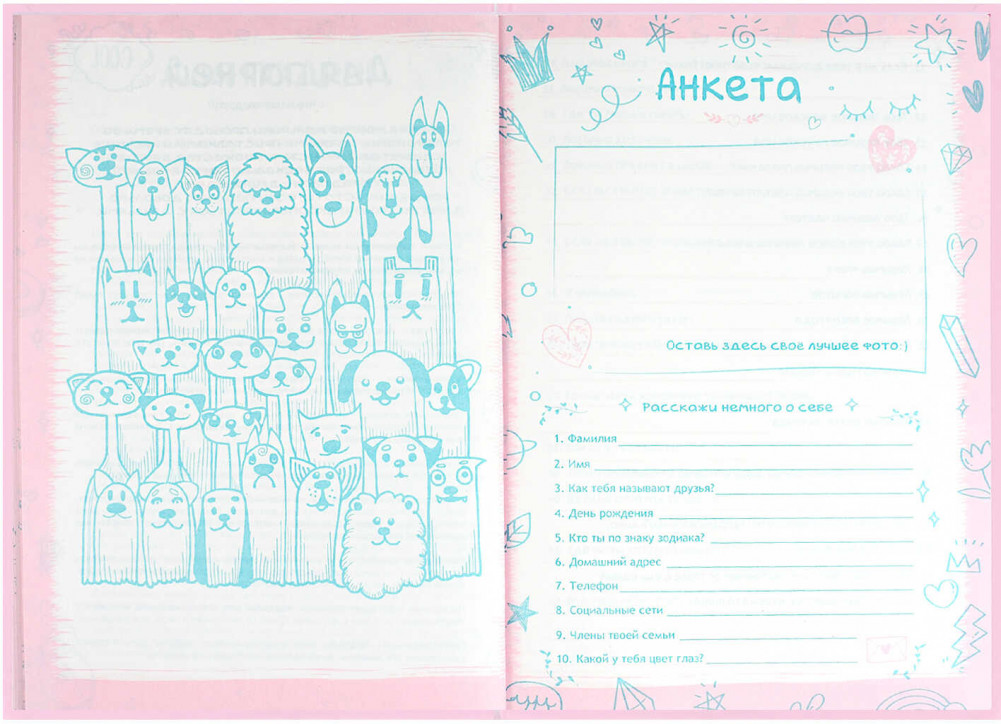 Анкета
Оставь здесь свое лучшее фото:)
Расскажи немного о себе
1. Фамилия
2. Имя
3. Как тебя называют друзья?
4. День рождения
5. Кто ты по знаку зодиака?
6. Домашний адрес
7. Телефон
8. Социальные сети
9. Члены твоей семьи
10. Какой у тебя цвет глаз?